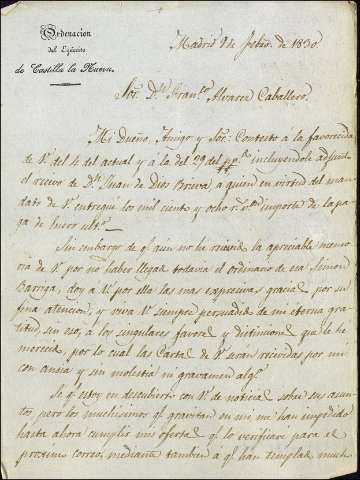 Ordenacion
del Egército
de Castilla la Nueva.
Madrid 9 de Febro. de 1830.
Sor. Dn. Franco. Alvarez Caballero.
Mi Dueño, Amigo y Sor: Contesto á la favorecida
de V. del 4 del actual y á la del 29 del pp.do incluyendole adjunto
el recivo de Dn. Juan de Dios Brieva á quien en virtud del man
dato de V. entregué los mil ciento y ocho rs. von. importe de la pa
ga de Enero ulto.
Sin embargo de q.e aun no he recivido la apreciable memo
ria de V. por no haber llegado todavia el ordinario de esa Simon
Barriga, doy á V. por ella las mas expresivas gracias por su
fina atencion, y viva V. siempre persuadido de mi eterna gra
titud, sin eso, á los singulares favores y distinciones que le he
merecido, por lo cual las Cartas de V. seran recividas por mi
con ansia y sin molestia ni gravamen alg.o
Si q.e estoy en descubierto con V. de noticias sobre sus asun
tos, pero los muchisimos q.e gravitan en mi, me han impedido
hasta ahora cumplir mis ofertas q.e lo verificaré para el
procsimo correo, mediante tambien á q.e han templado much